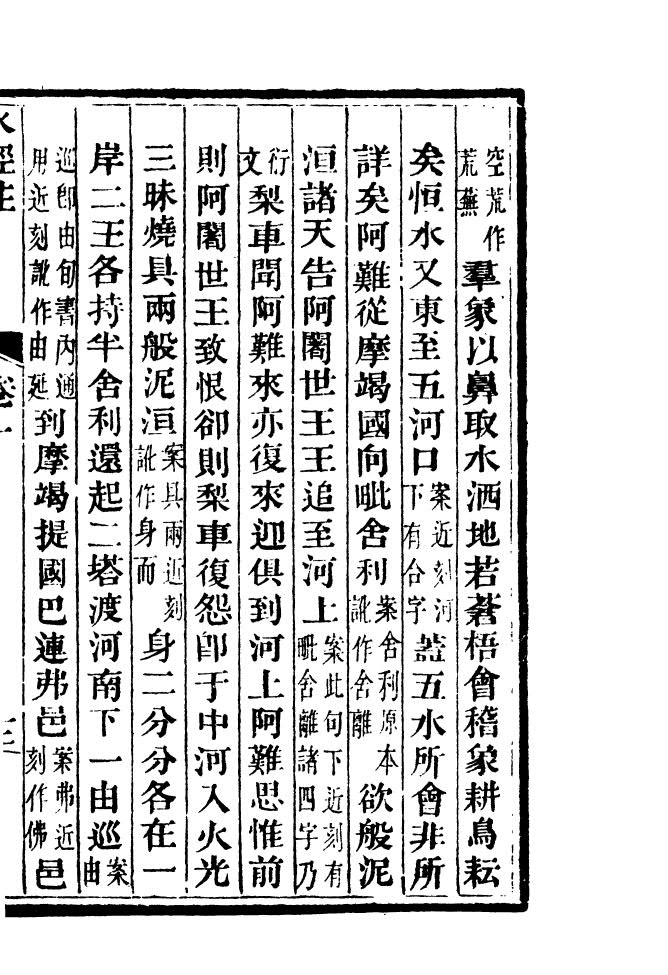 空荒作荒蕪羣象以鼻取水洒地若蒼梧會稽象耕鳥耘
矣恒水又東至五河口案近刻河下有合字蓋五水所會非所
詳矣阿難從摩竭國向毗舍利案舍利原本訛作舍離欲般泥
洹諸天告阿闍世王王追至河上案此句下近刻有毗舍離諸四字乃
衍文梨車聞阿難來亦復來迎俱到河上阿難思惟前
則阿闍世王致恨卻則梨車復怨即于中河入火光
三昧燒具兩般泥洹案具兩近刻訛作身而身二分分各在一
岸二王各持半舍利還起二塔渡河南下一由巡案由
巡即由旬書內通用近刻訛作由延到摩竭提國巴連弗邑案弗近刻作佛邑
水經注
卷一